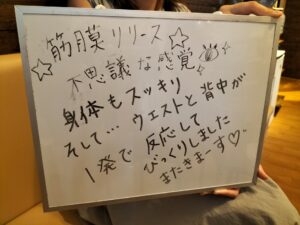 筋膜リリース☆
☆不思議な感覚
身体もスッキリ
そして… ウエストと背中が
1発で 反応して
びっくりしました
またきまーす♡